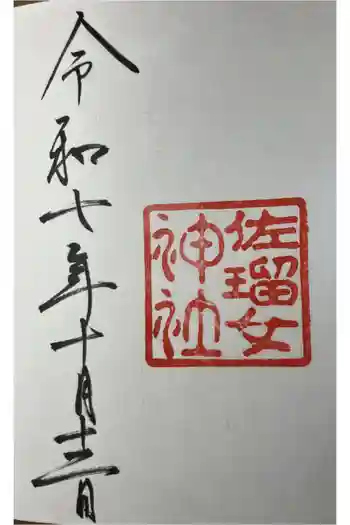 佐瑠女
神社
令和七年十月十三日